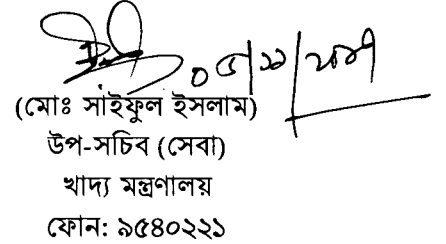 ০৫/১১/২০১৭
(মোঃ সাইফুল ইসলাম)
উপ-সচিব (সেবা)
খাদ্য মন্ত্রণালয়
ফোন: ৯৫৪০২২১